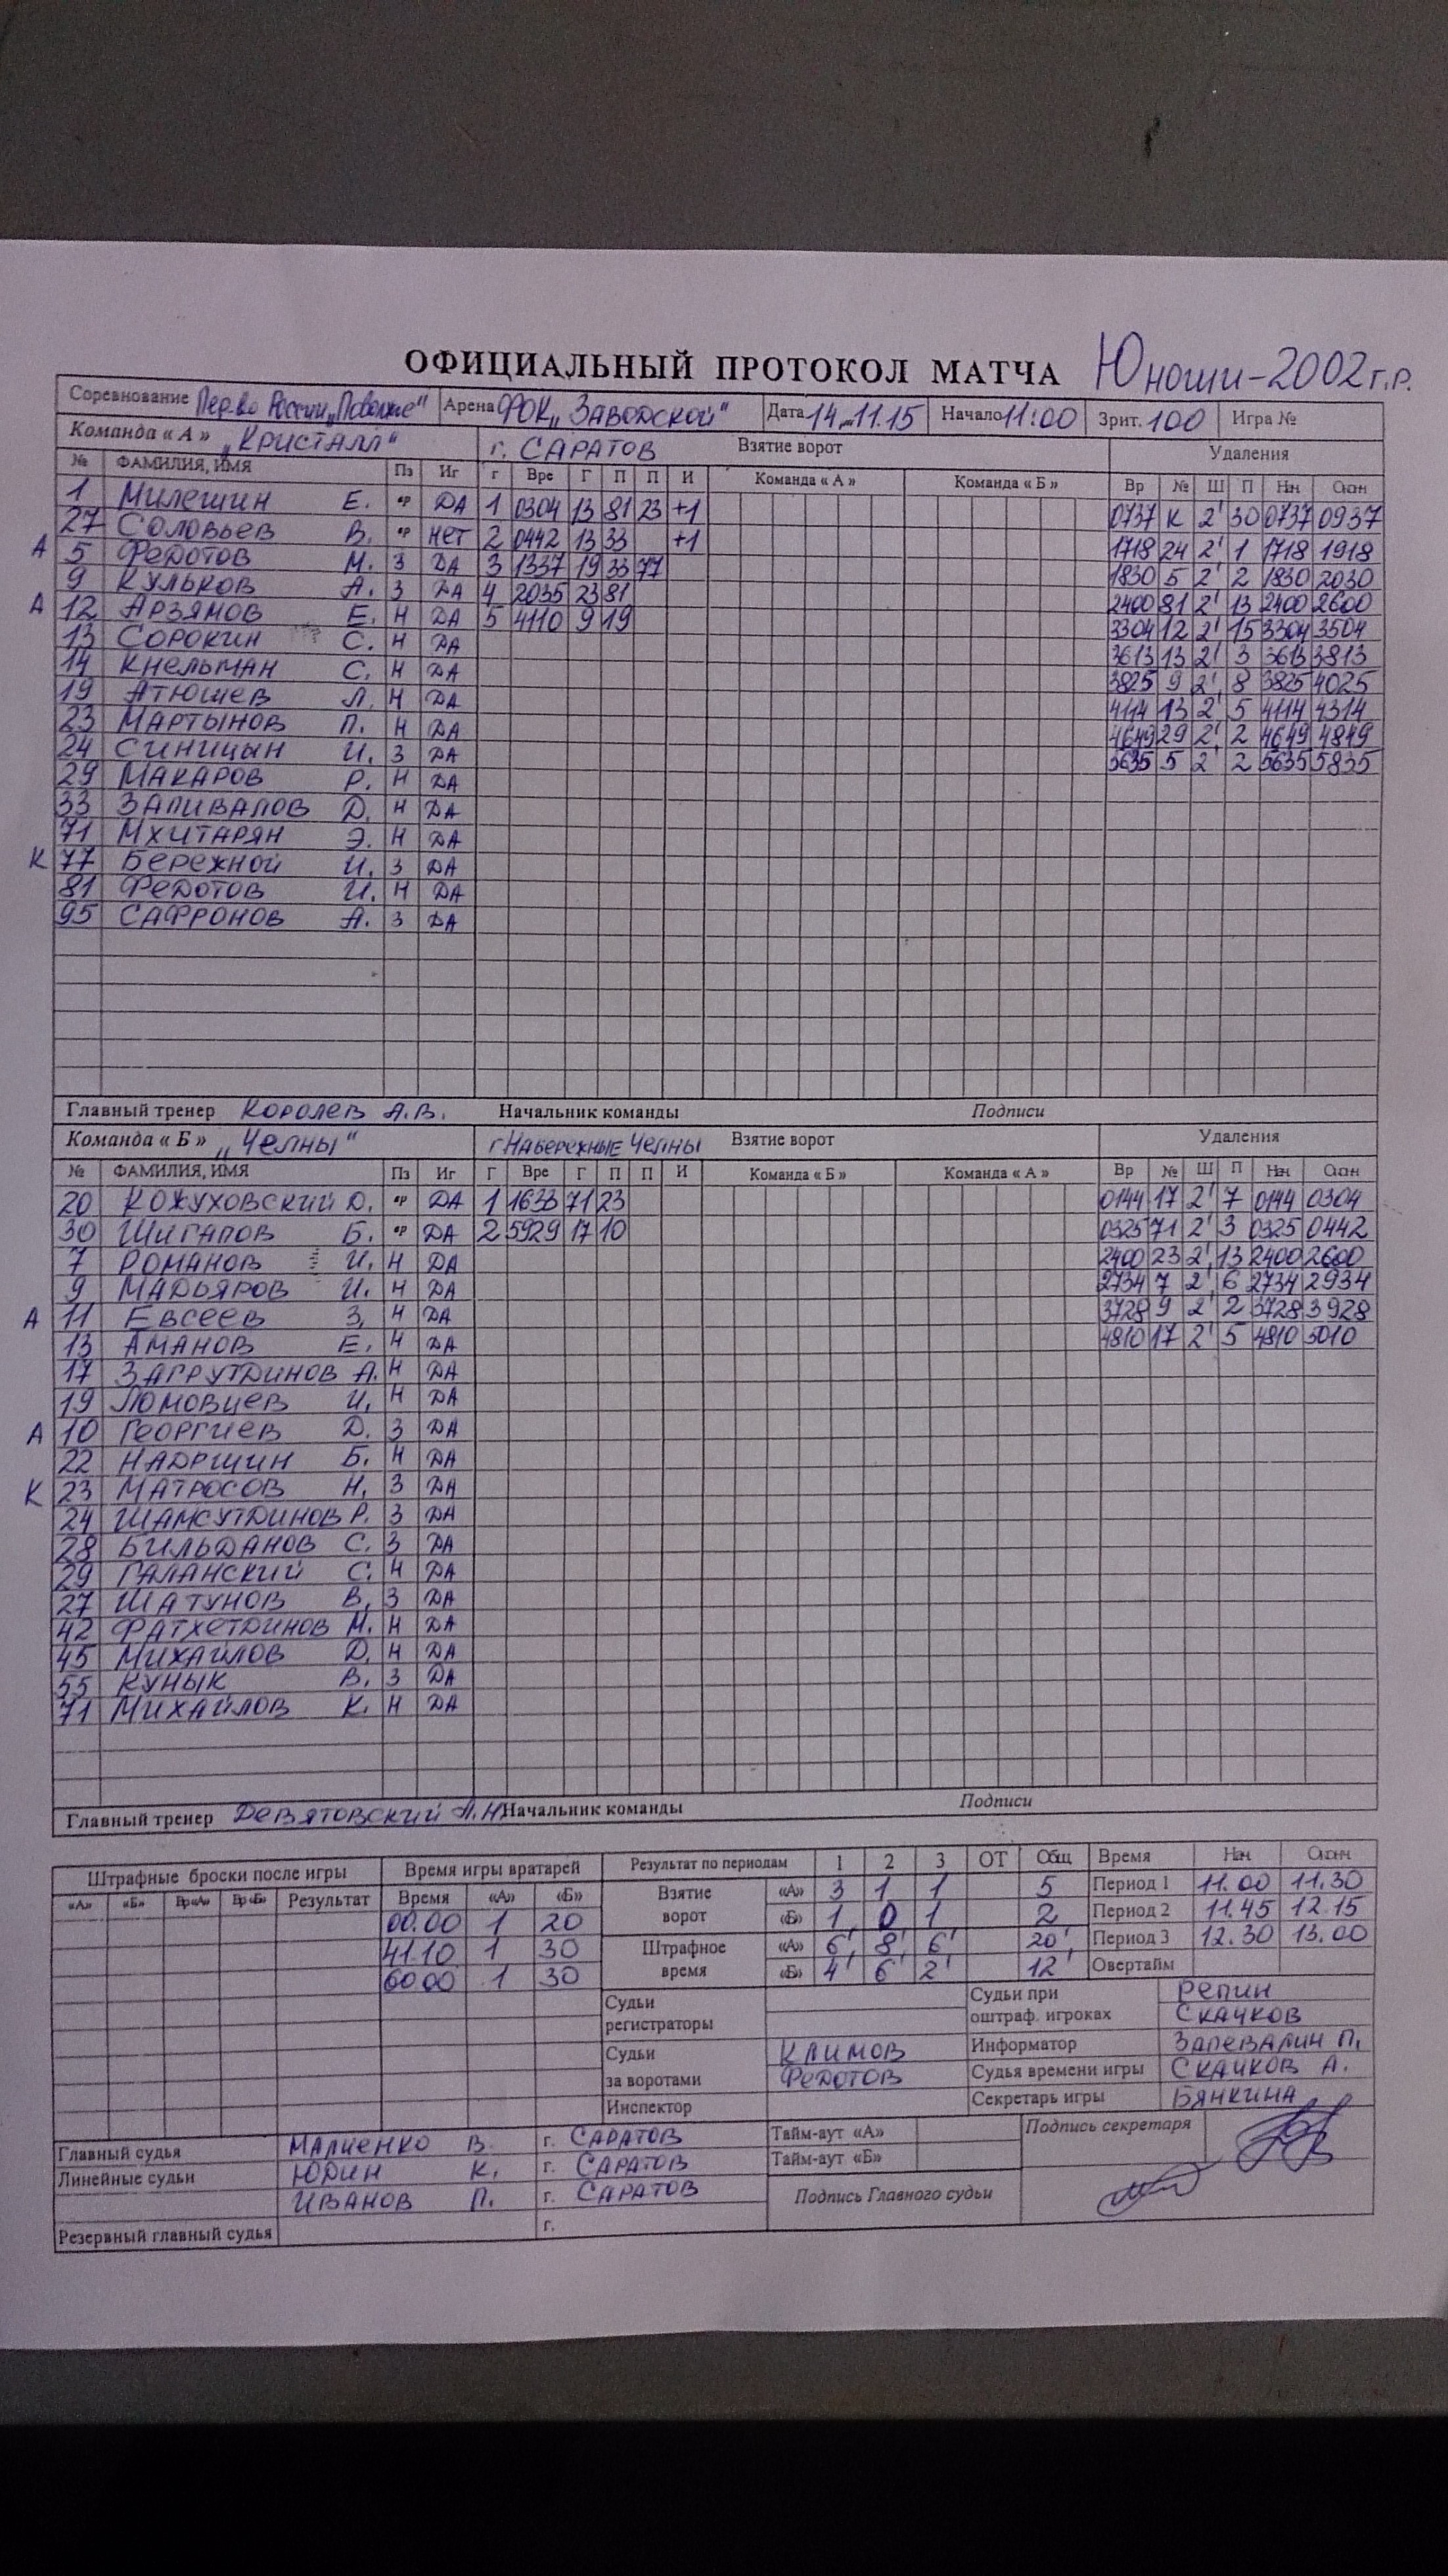 ОФИЦИАЛЬНЫЙ ПРОТОКОЛ МАТЧА Юноши-2002 г.р.
Соревнование Пер-во России „Поволжье" Арена ФОК „Заводской" Дата 14.11.15 Начало 11:00 Зрит. 100 Игра №
Команда « А » „Кристалл" г. САРАТОВ Взятие ворот Удаления
№ ФАМИЛИЯ, ИМЯ Пз Иг Г Вре Г П П И Команда « А » Команда « Б » Вр № Ш П Нач Окон
1 МИЛЕШИН Е. вр ДА 1 0304 13 81 23 +1 0737 К 2' 30 0737 0937
27 СОЛОВЬЕВ В. вр НЕТ 2 0442 13 33 +1 1718 24 2' 1 1718 1918
А 5 ФЕДОТОВ М. З ДА 3 1337 19 33 77 1830 5 2' 2 1830 2030
9 КУЛЬКОВ А. З ДА 4 2035 23 81 2400 81 2' 13 2400 2600
А 12 АРЗЯМОВ Е. Н ДА 5 4110 9 19 3304 12 2' 15 3304 3504
13 СОРОКИН С. Н ДА 3613 13 2' 3 3613 3813
14 КНЕЛЬМАН С. Н ДА 3825 9 2' 8 3825 4025
19 АТЮШЕВ Л. Н ДА 4114 13 2' 5 4114 4314
23 МАРТЫНОВ П. Н ДА 4649 29 2' 2 4649 4849
24 СИНИЦЫН И. З ДА 5635 5 2' 2 5635 5835
29 МАКАРОВ Р. Н ДА
33 ЗАЛИВАЛОВ Д. Н ДА
71 МХИТАРЯН Э. Н ДА
К 77 БЕРЕЖНОЙ И. З ДА
81 ФЕДОТОВ И. Н ДА
95 САФРОНОВ А. З ДА
Главный тренер КОРОЛЕВ А.В. Начальник команды Подписи
Команда « Б » „Челны" г НАБЕРЕЖНЫЕ ЧЕЛНЫ Взятие ворот Удаления
№ ФАМИЛИЯ, ИМЯ Пз Иг Г Вре Г П П И Команда « Б » Команда « А » Вр № Ш П Нач Окон
20 КОЖУХОВСКИЙ Д. вр ДА 1 1633 71 23 0144 17 2' 7 0144 0304
30 ШИГАПОВ Б. вр ДА 2 5929 17 10 0325 71 2' 3 0325 0442
7 РОМАНОВ И. Н ДА 2400 23 2' 13 2400 2600
9 МАДЬЯРОВ И. Н ДА 2734 7 2' 6 2734 2934
А 11 ЕВСЕЕВ З. Н ДА 3728 9 2' 2 3728 3928
13 АМАНОВ Е. Н ДА 4810 17 2' 5 4810 5010
17 ЗАГРУТДИНОВ А. Н ДА
19 ЛОМОВЦЕВ И. Н ДА
А 10 ГЕОРГИЕВ Д. З ДА
22 НАДРШИН Б. Н ДА
К 23 МАТРОСОВ Н. З ДА
24 ШАМСУТДИНОВ Р. З ДА
28 БИЛЬДАНОВ С. З ДА
29 ГАЛАНСКИЙ С. Н ДА
27 ШАТУНОВ В. З ДА
42 ФАТХЕТДИНОВ М. Н ДА
45 МИХАЙЛОВ Д. Н ДА
55 КУНЫК В. З ДА
71 МИХАЙЛОВ К. Н ДА
Главный тренер ДЕВЯТОВСКИЙ А.Н. Начальник команды Подписи
Штрафные броски после игры Время игры вратарей Результат по периодам 1 2 3 ОТ Общ Время Нач Оконч
«А» «Б» Вр«А» Вр«Б» Результат Время «А» «Б» Взятие ворот «А» 3 1 1 5 Период 1 11.00 11.30
00.00 1 20 «Б» 1 0 1 2 Период 2 11.45 12.15
41.10 1 30 Штрафное время «А» 6' 8' 6' 20' Период 3 12.30 13.00
60.00 1 30 «Б» 4' 6' 2' 12' Овертайм
Судьи регистраторы Судьи при оштраф. игроках РЕПИН
СКАЧКОВ
Судьи за воротами КЛИМОВ Информатор ЗАПЕВАЛИН П.
ФЕДОТОВ Судья времени игры СКАЧКОВ А.
Инспектор Секретарь игры БЯНКИНА
Главный судья МАЛИЕНКО В. г. САРАТОВ Тайм-аут «А» Подпись секретаря
Линейные судьи ЮДИН К. г. САРАТОВ Тайм-аут «Б»
ИВАНОВ П. г. САРАТОВ Подпись Главного судьи
Резервный главный судья г.